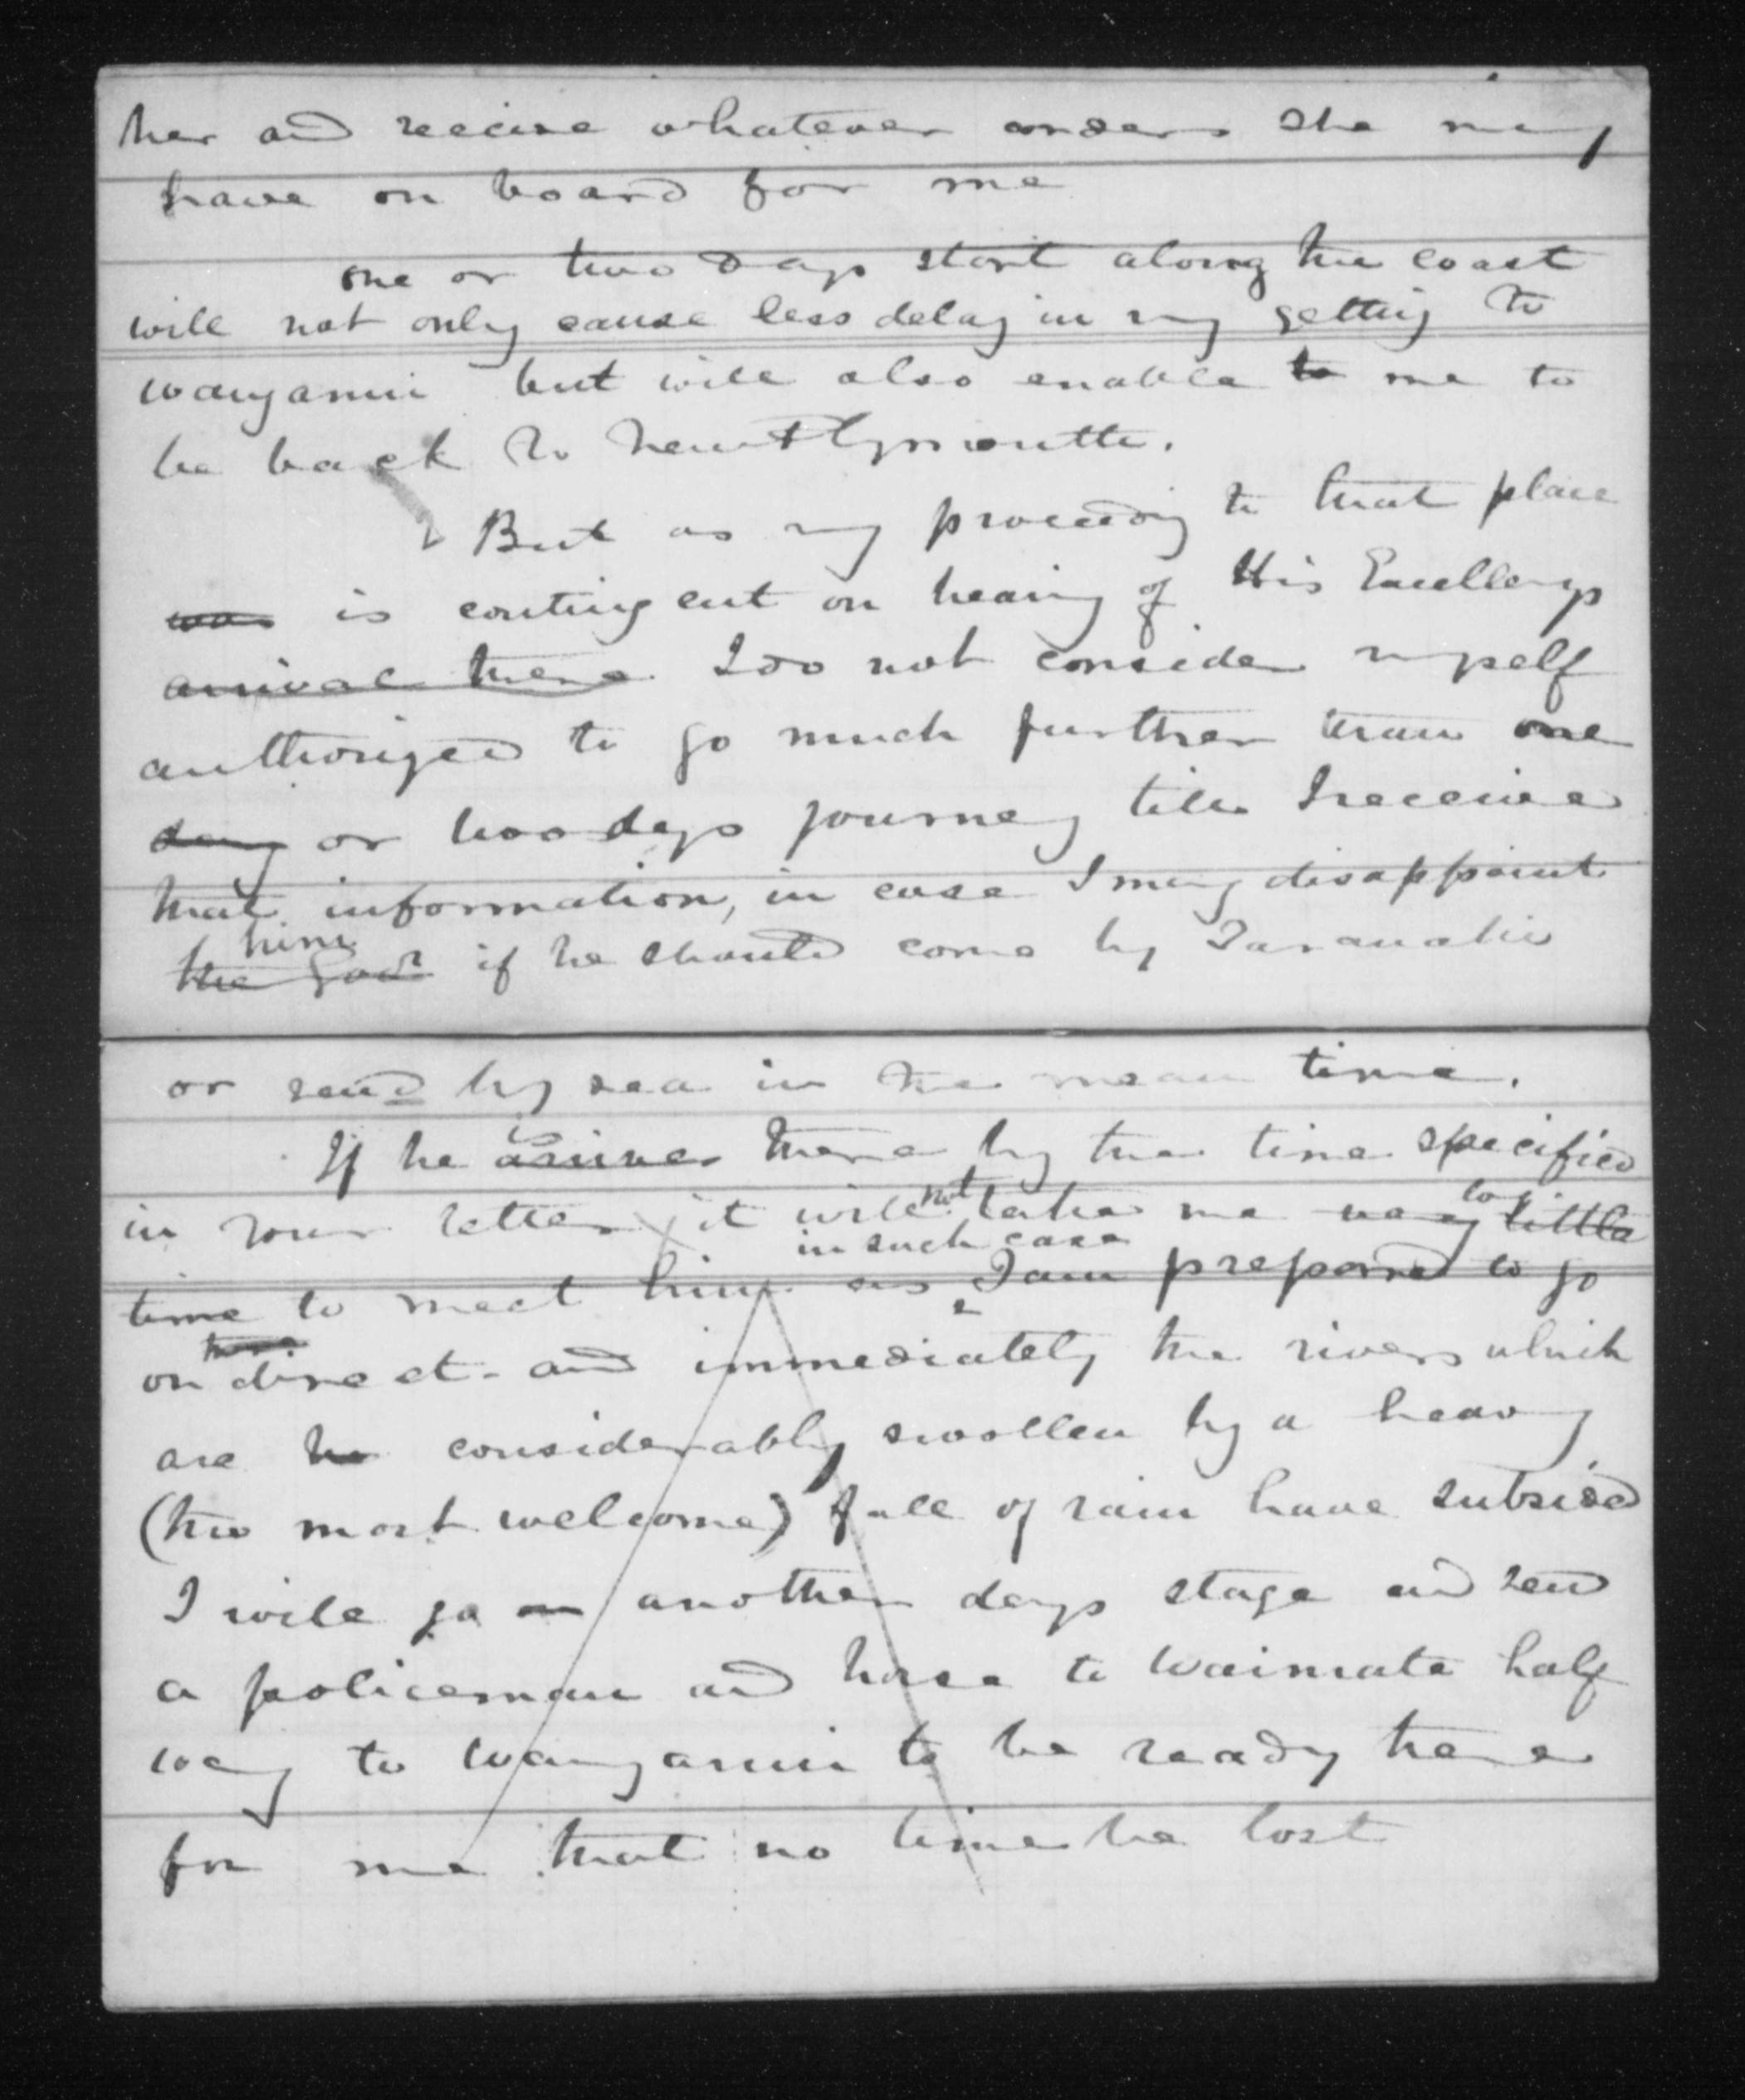 her and receive whatever orders she may
have on board for me
one or two days start along the coast
will not only cause less delay in my getting to
wanganui but will also enable to me to
be back to New Plymouth.
But as my proceeding to that place
was is contingent on hearing of His Excellencys
arrival there I do not consider myself
authorized to go much further than one
day or two days journey till I receive
that information, in case I may disappoint
him
the Govr if he should come by Taranaki
or send by sea in the mean time.
is
If he arrives there by the time specified
not to
in your letter it will take me very little
in such case
time to meet him as I am prepared to go
on direct and immediately the rivers which
are considerably swollen by a heavy
(tho most welcome) fall of rain have subsided
I will go on another days stage and send
a policeman and horse to Waimate half
way to wanganui to be ready there
for me that no time be lost